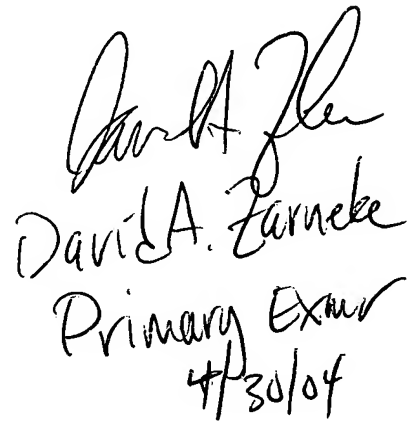 David A. Zarneke
Primary Exmr
4/30/04